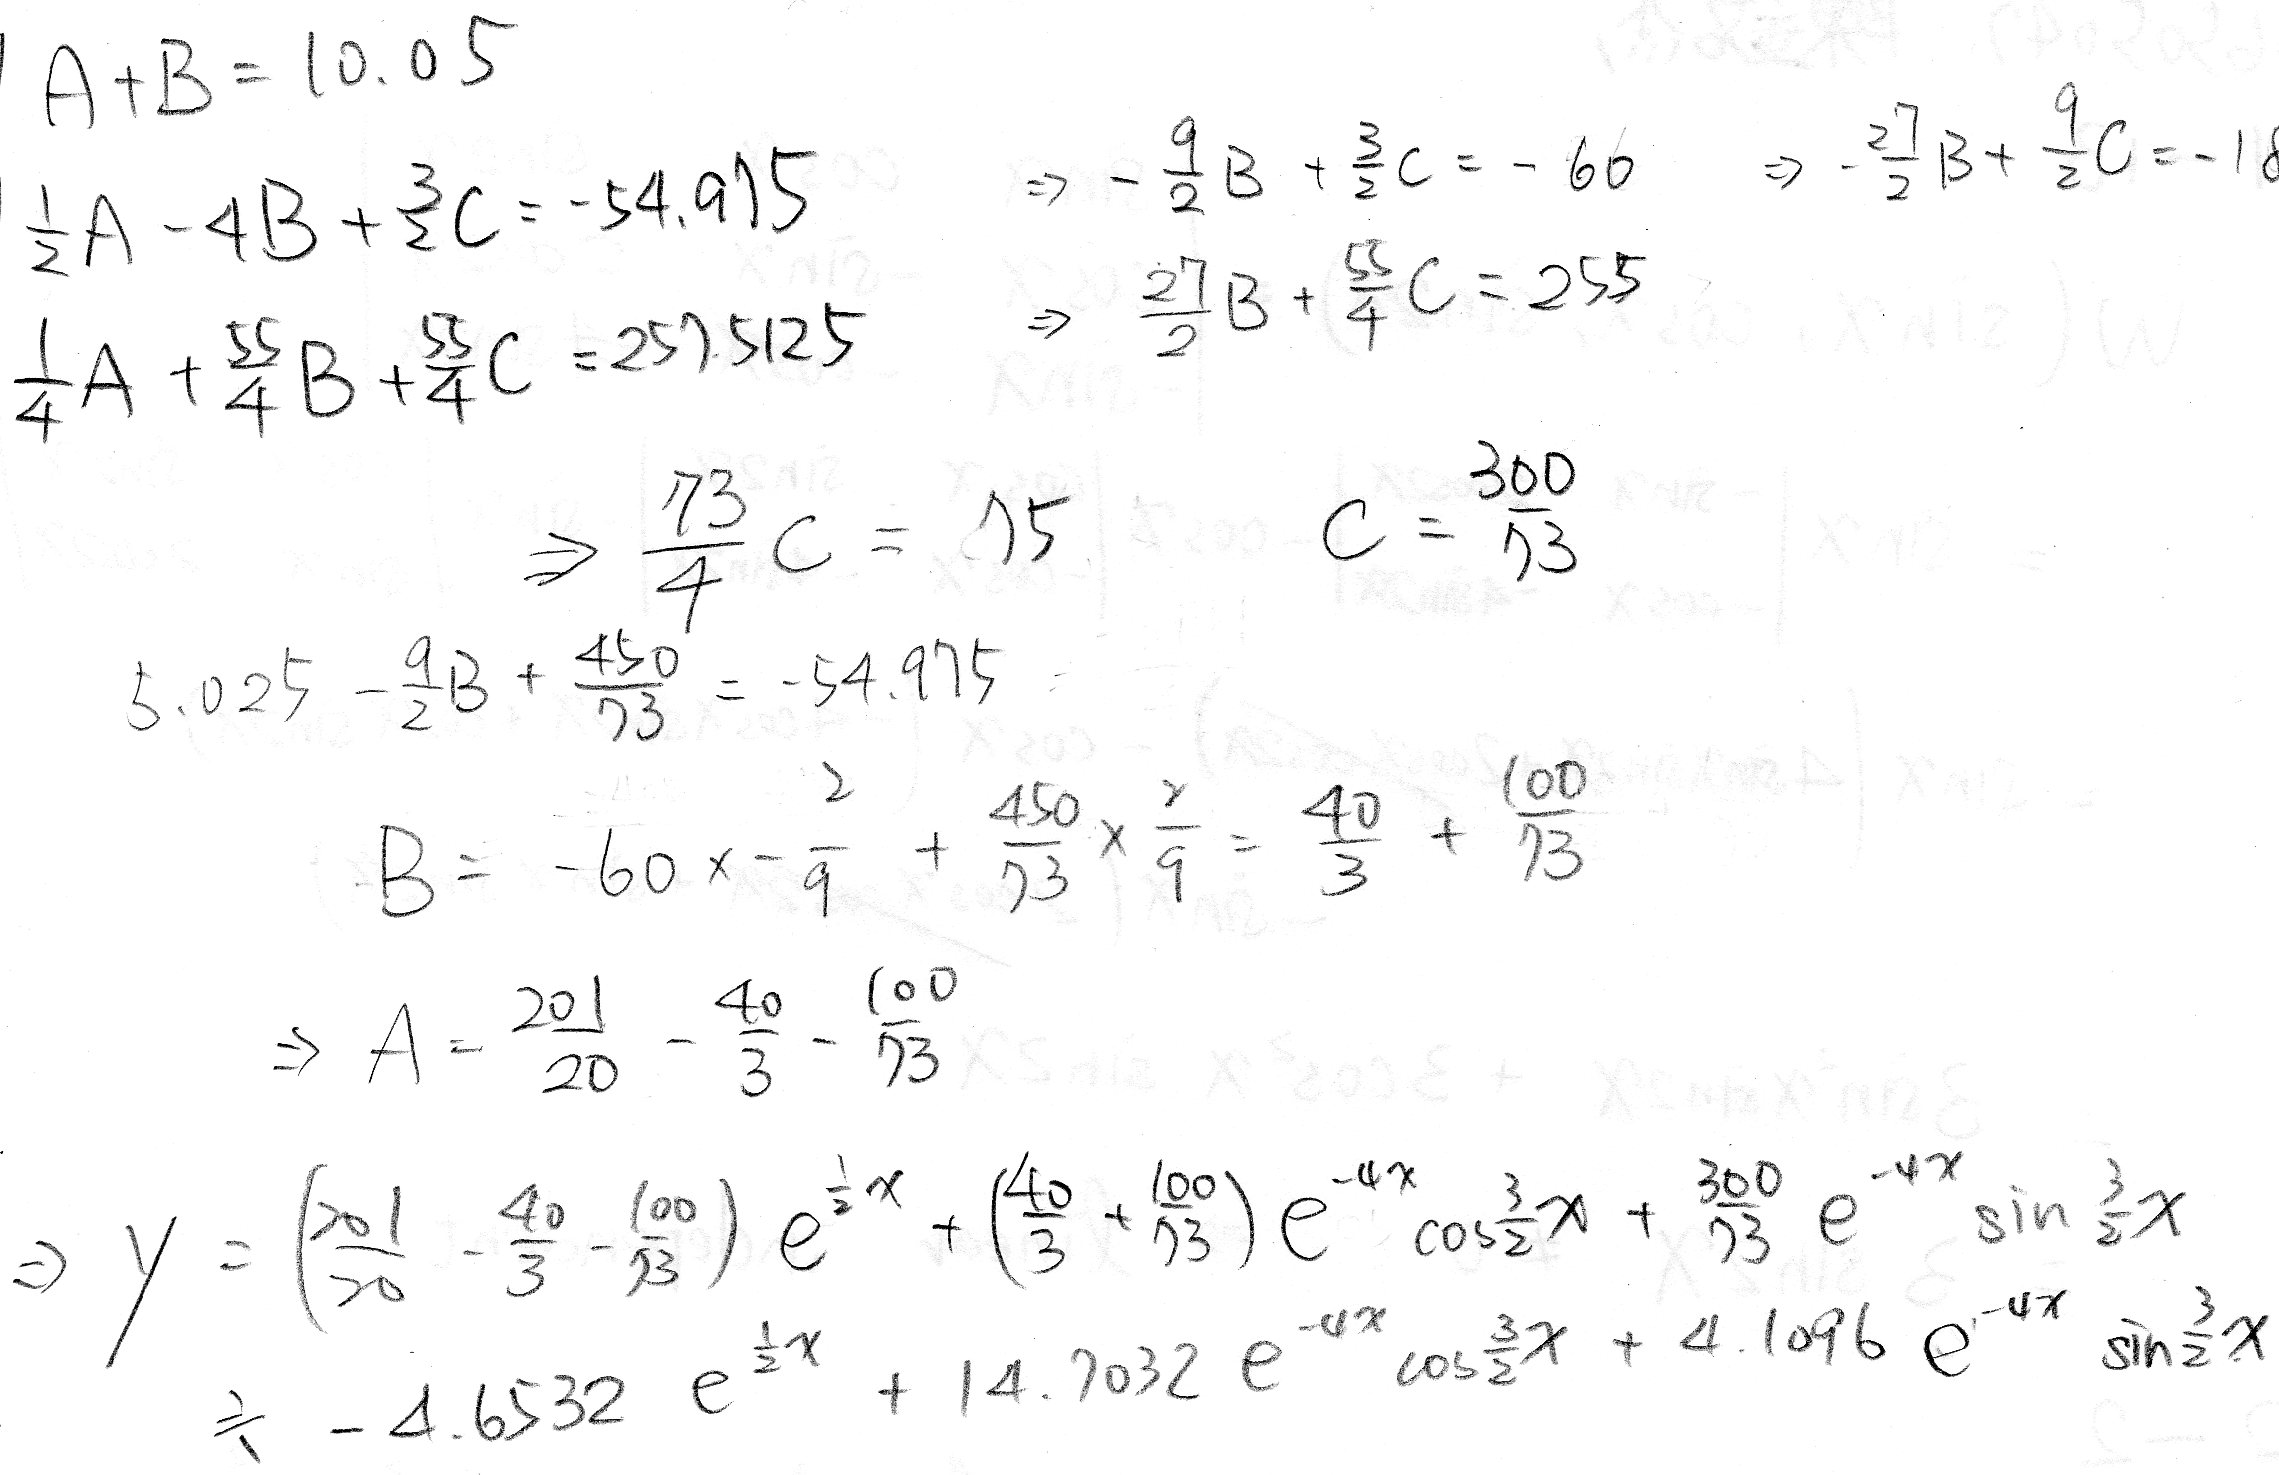 A+B=10.05
½A-4B+3/2C=-54.975 ⇒ -9/2B+3/2C=-60 ⇒ -27/2B+9/2C=-18
¼A+55/4B+55/4C=257.5125 ⇒ 27/2B+55/4C=255
⇒ 73/4C=75 C=300/73
5.025-9/2B+450/73=-54.975
B=-60×-2/9+450/73×2/9=40/3+100/73
⇒ A=201/20-40/3-100/73
⇒ y=(201/20-40/3-100/73)e^{½x}+(40/3+100/73)e^{-4x}cos3/2x+300/73e^{-4x}sin3/2x
≒ -4.6532e^{½x}+14.7032e^{-4x}cos3/2x+4.1096e^{-4x}sin3/2x